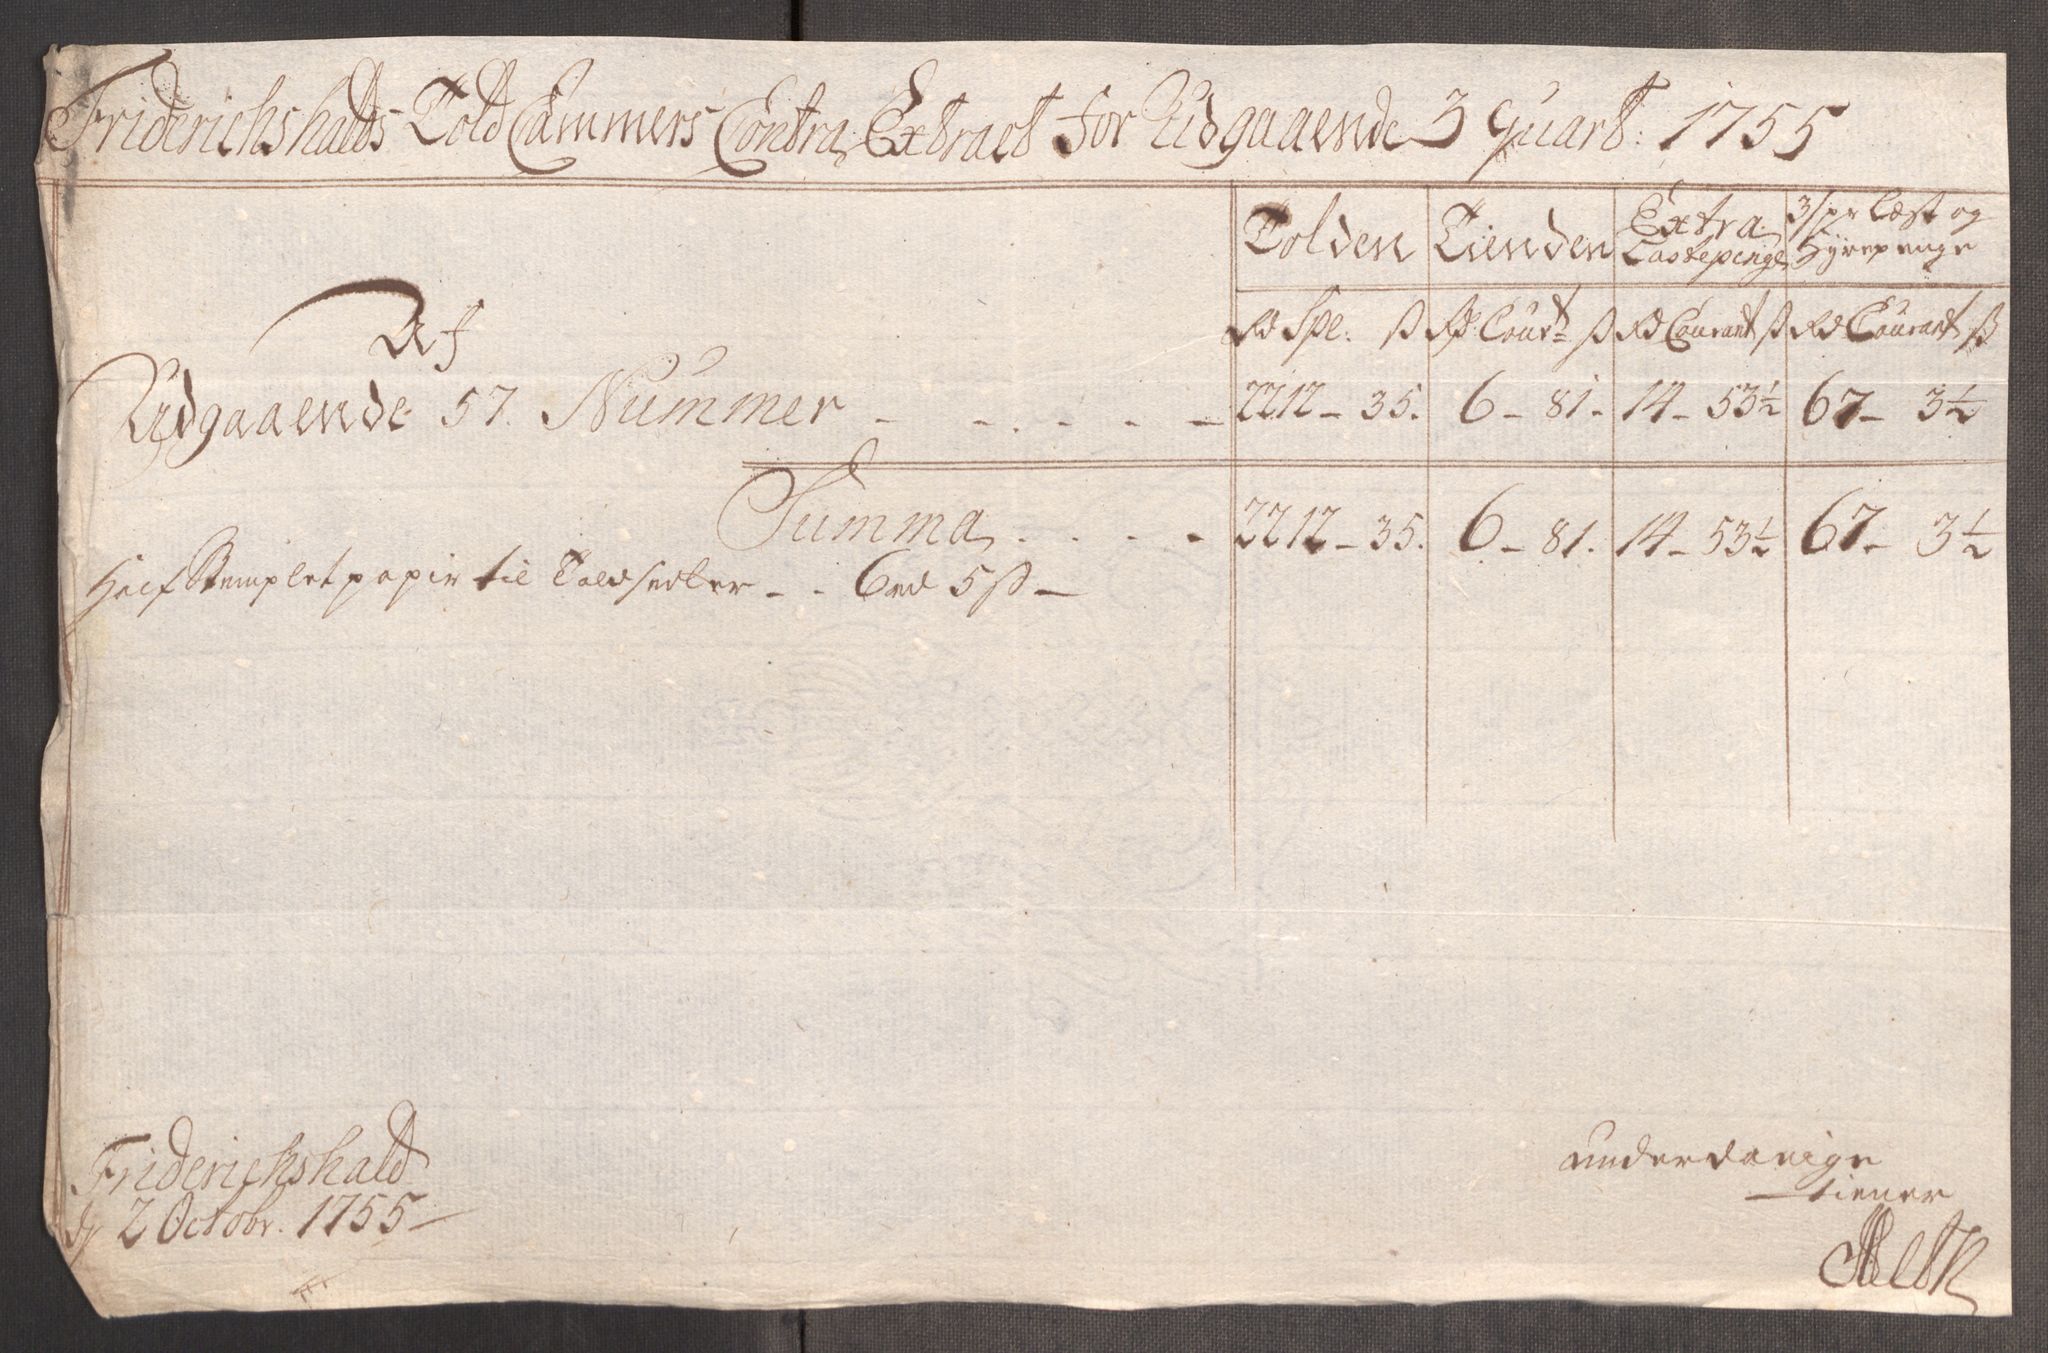 Friderichshalds Told Cammers Contra Extract for Udgaaende 3 Quart: 1755
Tolden Tienden Extra Lastepenge 3 spr Læst og Hyrepenge
Rd Spe: ß Rd: Court ß Rd Courant ß Rd Courant ß
Af
Udgaaende 57. Nummer - - . - - - 2212 - 35. 6 - 81 - 14 - 53½ 67 - 3½
Summa . . . . 2212 - 35. 6 - 81. 14 - 53½ 67 - 3½
Stemplet papir til Toldsedler - - 6 rd 5 ß -
Friderichshald
d 2 Octobr. 1755 -
underdanige
tiener